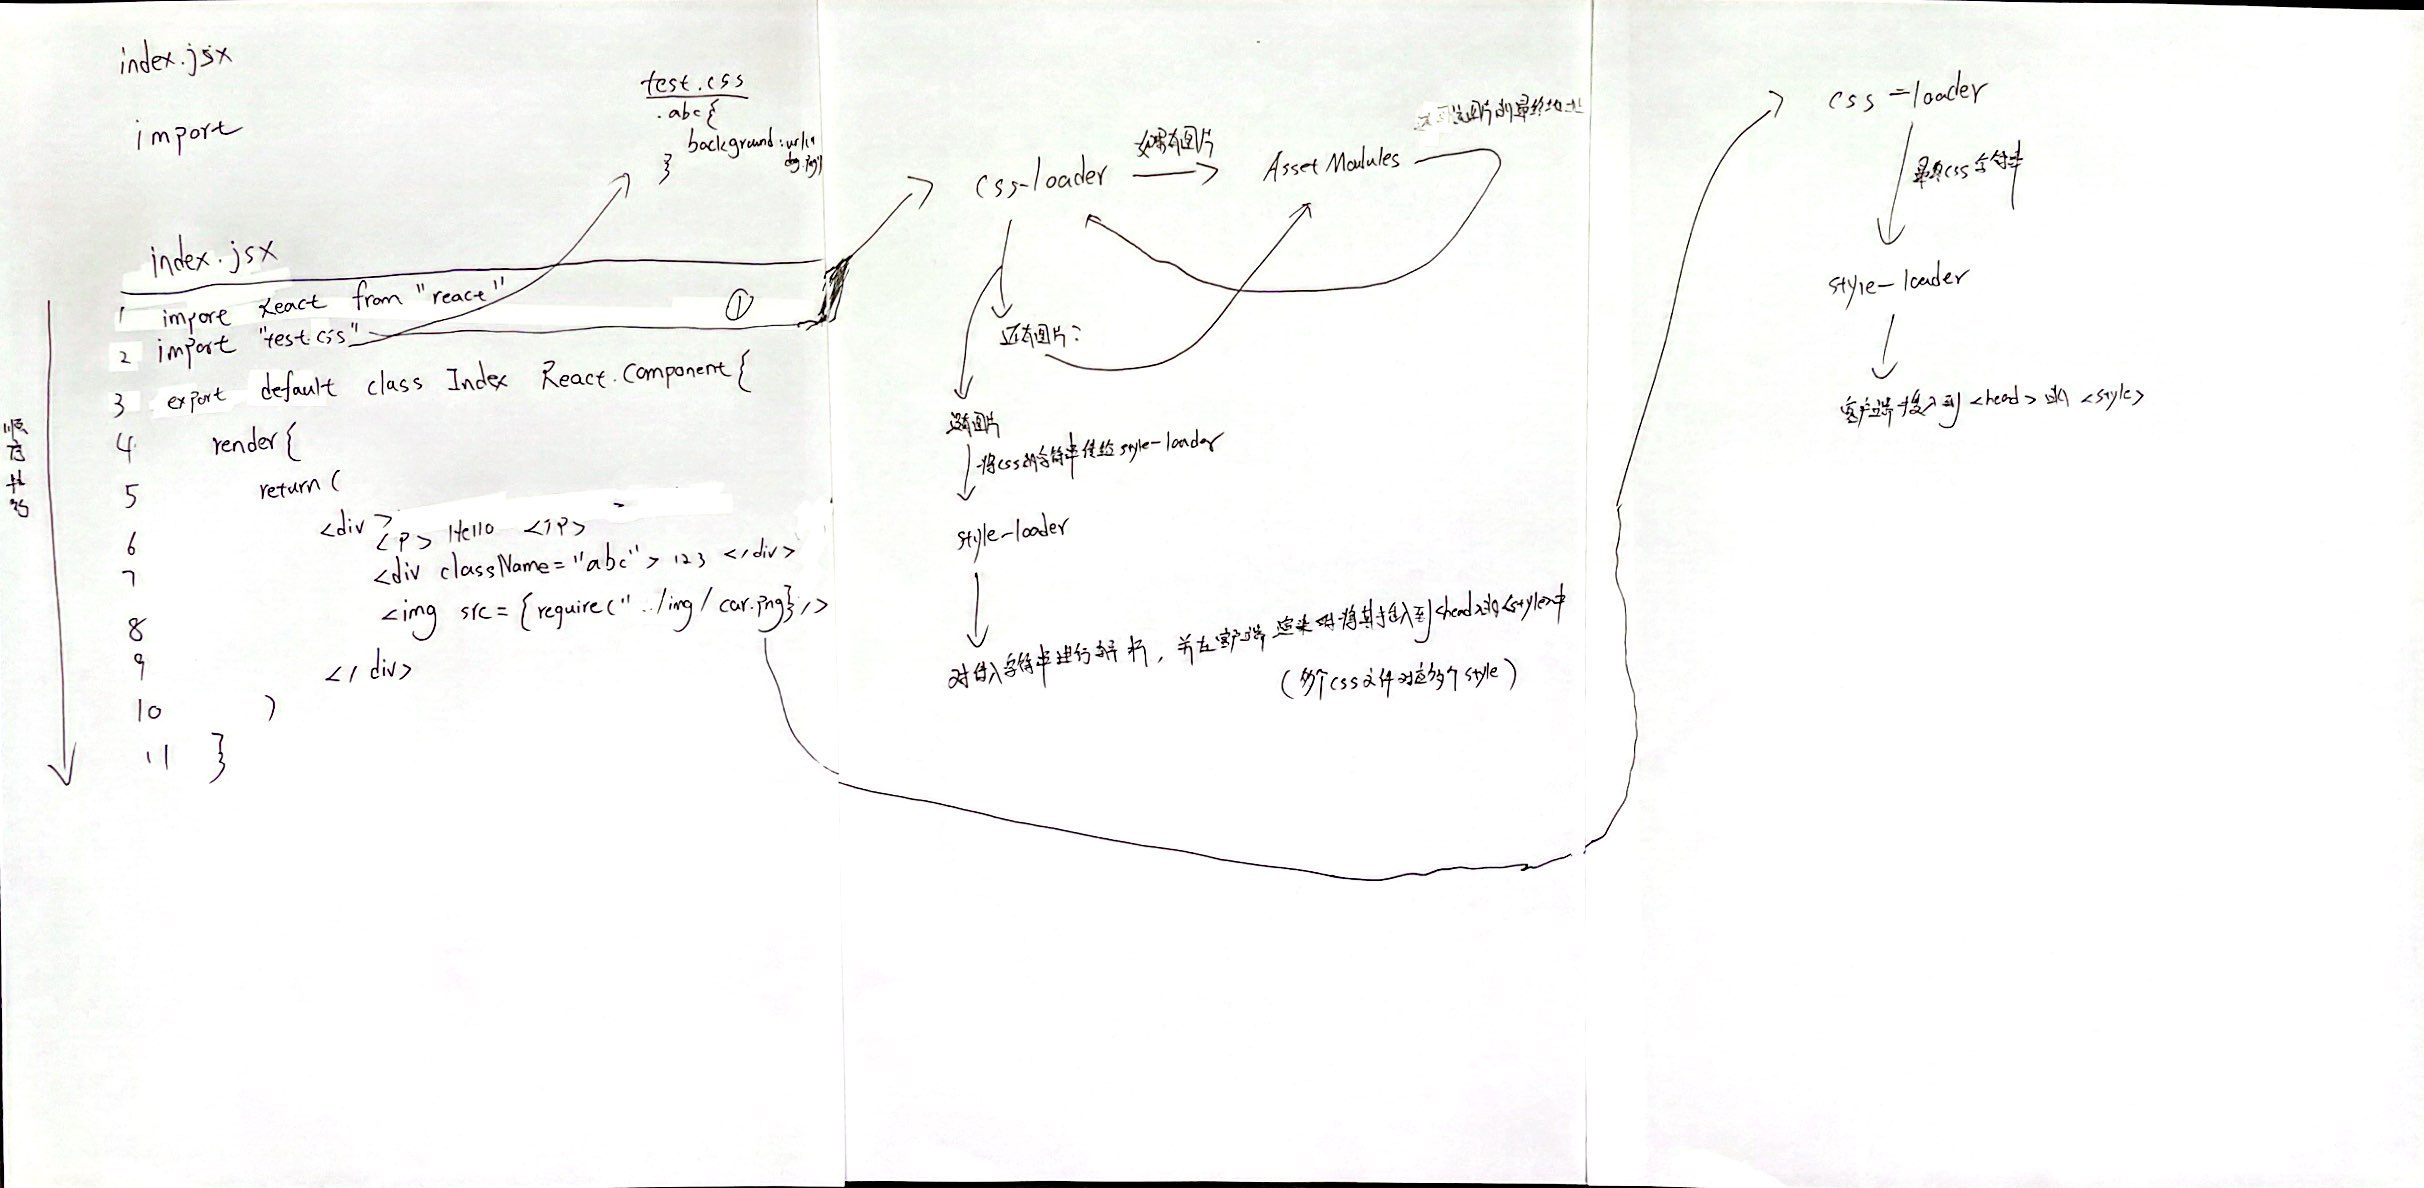 index.jsx
import
test.css
.abc{
background:url("
dog.png")
}
index.jsx
1 impore React from "react"
2 import "test.css"
①
3 export default class Index React.Component{
4 render{
5 return(
<div>
6 <p> Hello </p>
7 <div className="abc"> 123 </div>
8 <img src={require("../img/car.png}/>
9 </div>
10 )
11 }
顺序执行
css-loader
如果有图片
Asset Modules
返回该图片的最终地址
还有图片?
没有图片
将css的字符串传给style-loader
style-loader
对传入字符串进行解析,并在客户端渲染时将其插入到<head>的<style>中
(多个css文件对应多个style)
css-loader
最终css字符串
style-loader
客户端插入到<head>的<style>